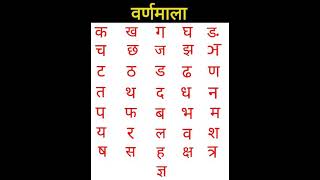 वर्णमाला
क ख ग घ ङ
च छ ज झ ञ
ट ठ ड ढ ण
त थ द ध न
प फ ब भ म
य र ल व श
ष स ह क्ष त्र
ज्ञ